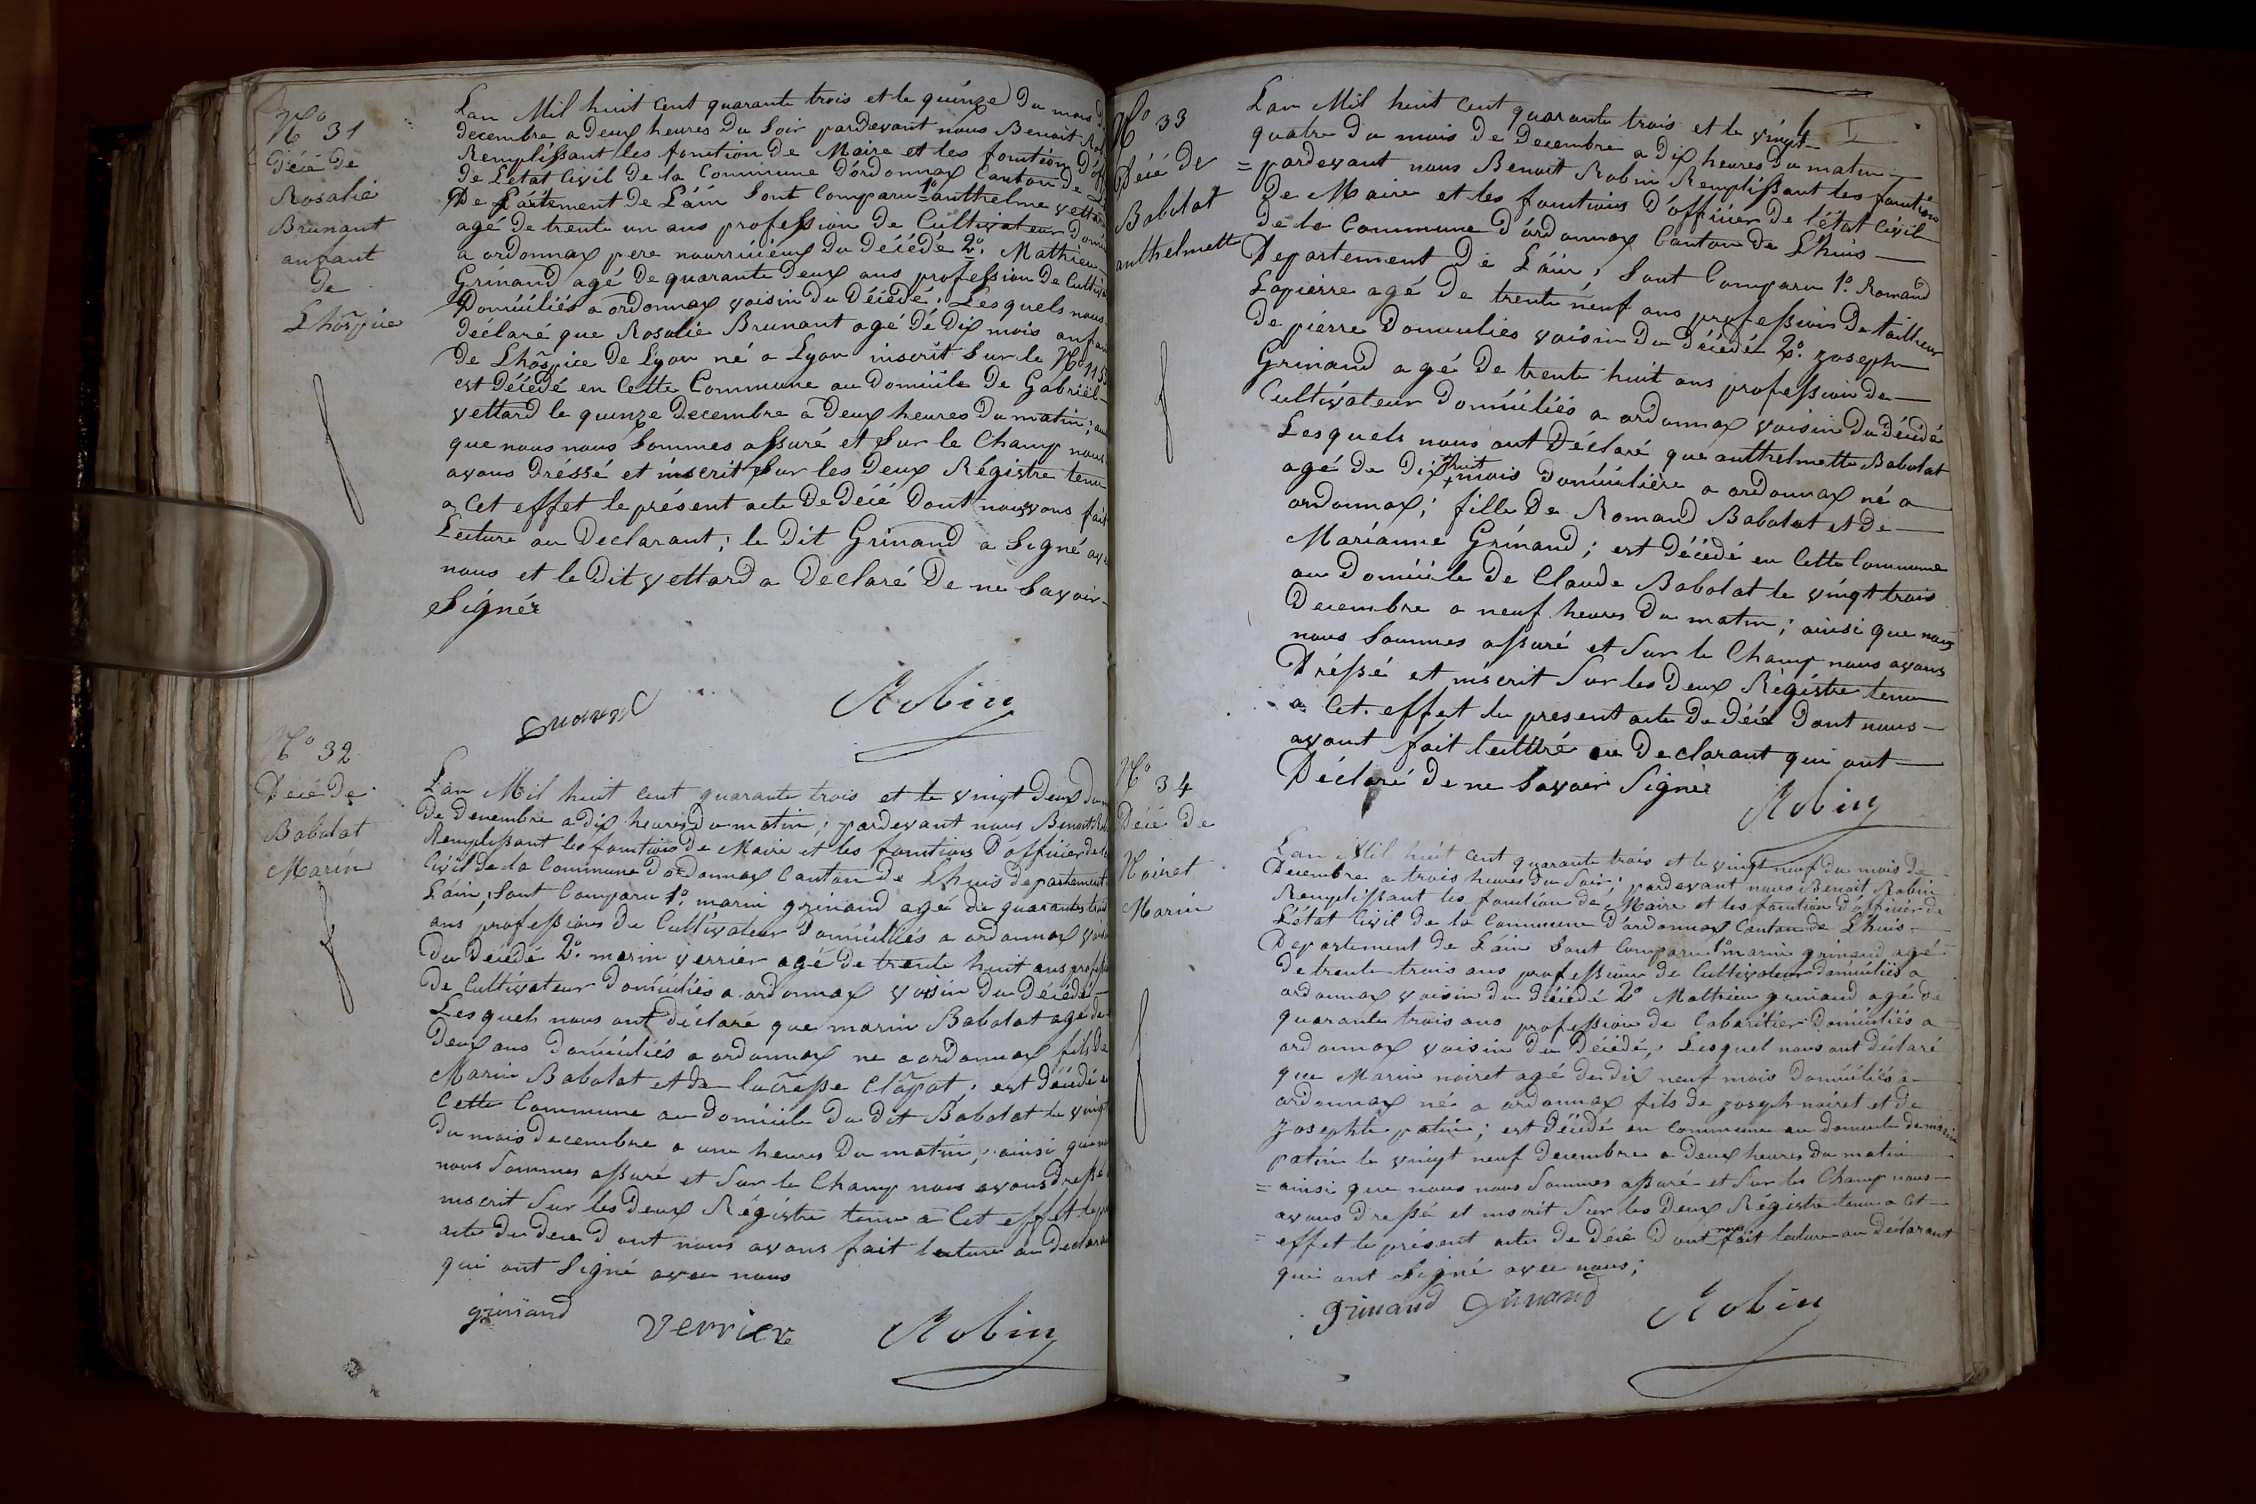 No 31
Décé de
Rosalie
Brunant
anfant
de
Lhospice
Lan Mil huit Cent quarante trois et le quinze du mois
decembre a deux heures du Soir pardevant nous Benoit
Remplissant les fonction de Maire et les fonction
de Létat Civil de la Commune d'ordonnax Canton de
De Partement de Láin Sont Comparu 1o anthelme vettard
agé de trente un ans profession de Cultivateur
a ordonnax pere nourricieux du décédé 2o. Mathieu
Grinand agé de quarante deux ans profession de
Domiciliés a ordonnax voisin du décédé, Lesquels nous
déclaré que Rosalie Brunant agé dé dix mois
de Lhospice de Lyon né a Lyon inscrit sur le No
est décédé en cette Commune au domicile de Gabriel
vettard le quinze decembre a deux heures du matin;
que nous nous sommes assuré et sur le Champ nous
avons dréssé et inscrit sur les deux Régistre tenu
a Cet effet le présent acte de décé dont nous avons fait
Lecture au Declarant; le dit Grinand a signé
nous et le dit vettard a declaré de ne savoir
Signér
Grinand Robin
No 32
Décé de
Babolat
Marin
Lan Mil huit Cent quarante trois et le vingt deux
de decembre a dix heures du matin; pardevant nous Benoit
Remplissant les fonctions de Maire et les fonctions d'officier
Civil de la Commune d'ordonnax Canton de Lhuis departement
Lain, Sont Comparu 1o. marin grinand agé de quarante
ans profession de Cultivateur domiciliés a ordonnax
du décédé 2o. marin verrier agé de trente huit ans
de Cultivateur domiciliés a ordonnax voisin du décédé
Lesquels nous ont déclaré que marin Babolat agé de
deux ans domiciliés a ordonnax ne a ordonnax fils de
Marin Babolat et de Clapot; est décédé
Cette Commune au domicile du dit Babolat le vingt
du mois decembre a une heures du matin, ainsi que
nous sommes assuré et sur le Champ nous avons dressé
inscrit sur les deux Régistre tenu a Cet effet
acte de décé dont nous avons fait lecture au
qui ont signé avec nous
grinand verrier Robin
No 33
Décé de
Babolat
anthelmette
Lan Mil huit cent quarante trois et le vingt
quatre du mois de Decembre a dix heures du matin
= pardevant nous Benoit Robin Remplissant les fonction
de Maire et les fonctions d'officier de l'état Civil
de la Commune d'ordonnax Canton de Lhuis
Departement de Láin, Sont Comparu 1o. Romand
Lapierre agé de trente neuf ans profession de tailleur
de pierre domiciliés voisin du décédé 2o. joseph
Grinand agé de trente huit ans profession de
Cultivateur domiciliés a ordonnax voisin du décédé
Lesquels nous ont déclaré que anthelmette Babolat
agé de dix huit mois domicilière a ordonnax né a
ordonnax; fille de Romand Babolat et de
Marianne Grinand; est décédé en Cette Commune
au domicile de Claude Babolat le vingt trois
Decembre a neuf heures du matin; ainsi que nous
nous sommes assuré et sur le Champ nous avons
Dréssé et inscrit sur les deux Régistre tenu
a Cet effet le present acte de décé dont nous
avont fait lecture au Declarant qui ont
Déclaré de ne savoir Signér
Robin
No 34
Décé de
Noiret
Marin
Lan Mil huit cent quarante trois et le vingt neuf du mois de
Decembre a trois heures du Soir; pardevant nous Benoit Robin
Remplissant les fonction de Maire et les fonction d'officiér de
Létat Civil de la Commune d'ordonnax Canton de Lhuis
Departement de Lain Sont Comparu 1o marin grinand agé
de trente trois ans profession de Cultivateur domiciliés a
ordonnax voisin du décédé 2o Mathieu grinand agé de
quarante trois ans profession de Cabaritier domiciliés a
ordonnax voisin du décédé, Lesquel nous ont déclaré
que Marin noiret agé de dix neuf mois domiciliés a
ordonnax né a ordonnax fils de joseph noiret et de
josephte patin; est décédé en commune au domicile de marin
patin le vingt neuf decembre a deux heures du matin
= ainsi que nous nous sommes assuré et sur le Champ nous
avons dressé et inscrit sur les deux Régistre tenu a Cet
= effet le présent acte de décé dont nous fait lecture au déclarant
qui ont signé avec nous;
Grinand Grinand Robin